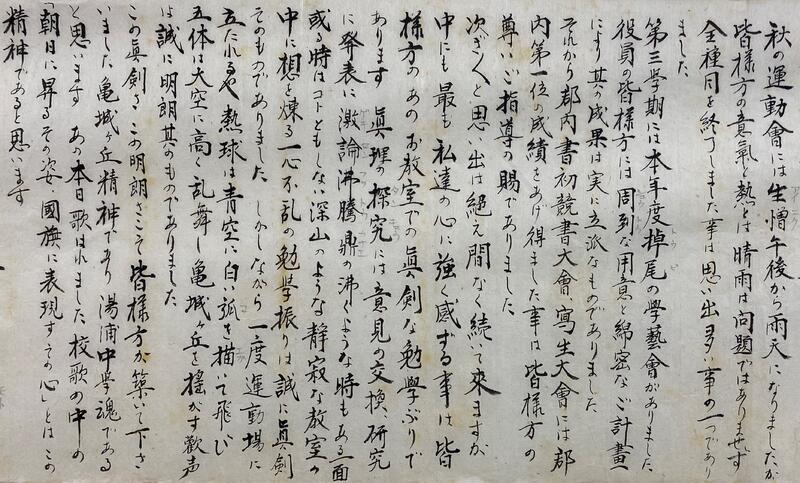 秋の運動會には生憎午後から雨天になりましたが
皆様方の意氣と熱とは晴雨は問題ではありませず
全種目を終了しました事は思い出多い事の一つであり
ました
第三學期には本年度掉尾の學藝會がありました
役員の皆様方には周到な用意と綿密なご計畫
により其の成果は実に立派なものでありました
それから郡内書初競書大會、寫生大會には郡
内第一位の成績をあげ得ました事は皆様方の
尊いご指導の賜でありました
次ぎ〱と思い出は絶え間なく続いて來ますが
中にも最も私達の心に強く感ずる事は皆
様方のあのお教室での眞剣な勉學ぶりで
あります 眞理の探究には意見の交換、研究
に発表に激論沸騰鼎の沸くような時もある一面
或る時はコトともしない深山のような静寂な教室の
中に想を煉る一心不乱の勉学振りは誠に眞剣
そのものでありました しかしながら一度運動場に
立たれるや熱球は青空に白い弧を描いて飛び
五体は大空に高く乱舞し亀城ヶ丘を搖がす歡声
は誠に明朗其のものでありました
この眞剣さこの明朗さこそ皆様方が築いて下さ
いました亀城ヶ丘精神であり湯浦中学魂である
と思います あの本日歌はれました校歌の中の
「朝日に昇るその姿、國旗に表現すその心」とはこの
精神であると思います